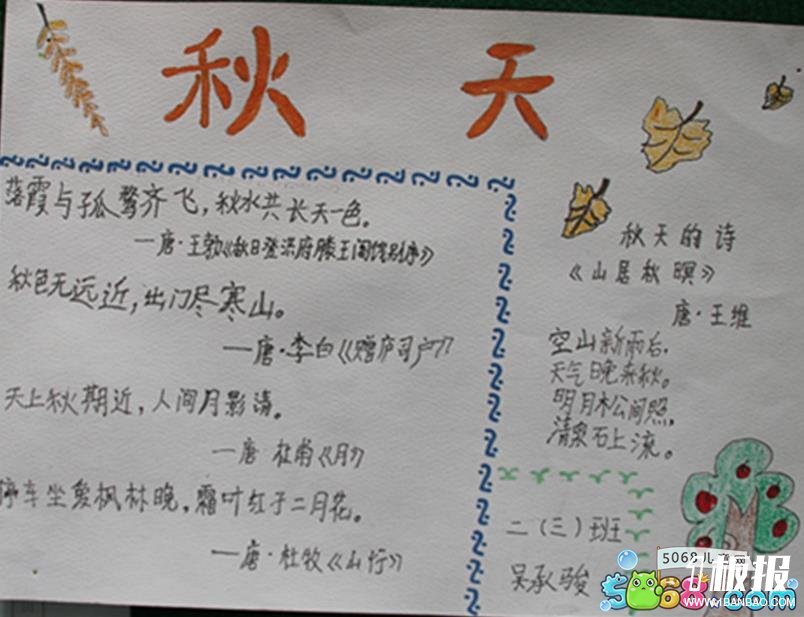 秋天
落霞与孤鹜齐飞，秋水共长天一色。
—唐·王勃《秋日登洪府滕王阁饯别序》
秋色无远近，出门尽寒山。
—唐·李白《赠庐司户》
天上秋期近，人间月影清。
—唐 杜甫《月》
停车坐爱枫林晚，霜叶红于二月花。
—唐·杜牧《山行》
秋天的诗
《山居秋暝》
唐·王维
空山新雨后，
天气晚来秋。
明月松间照，
清泉石上流。
二（三）班
吴承骏
5068儿童网
5068.com
板报
WWW.1BANBAO.COM